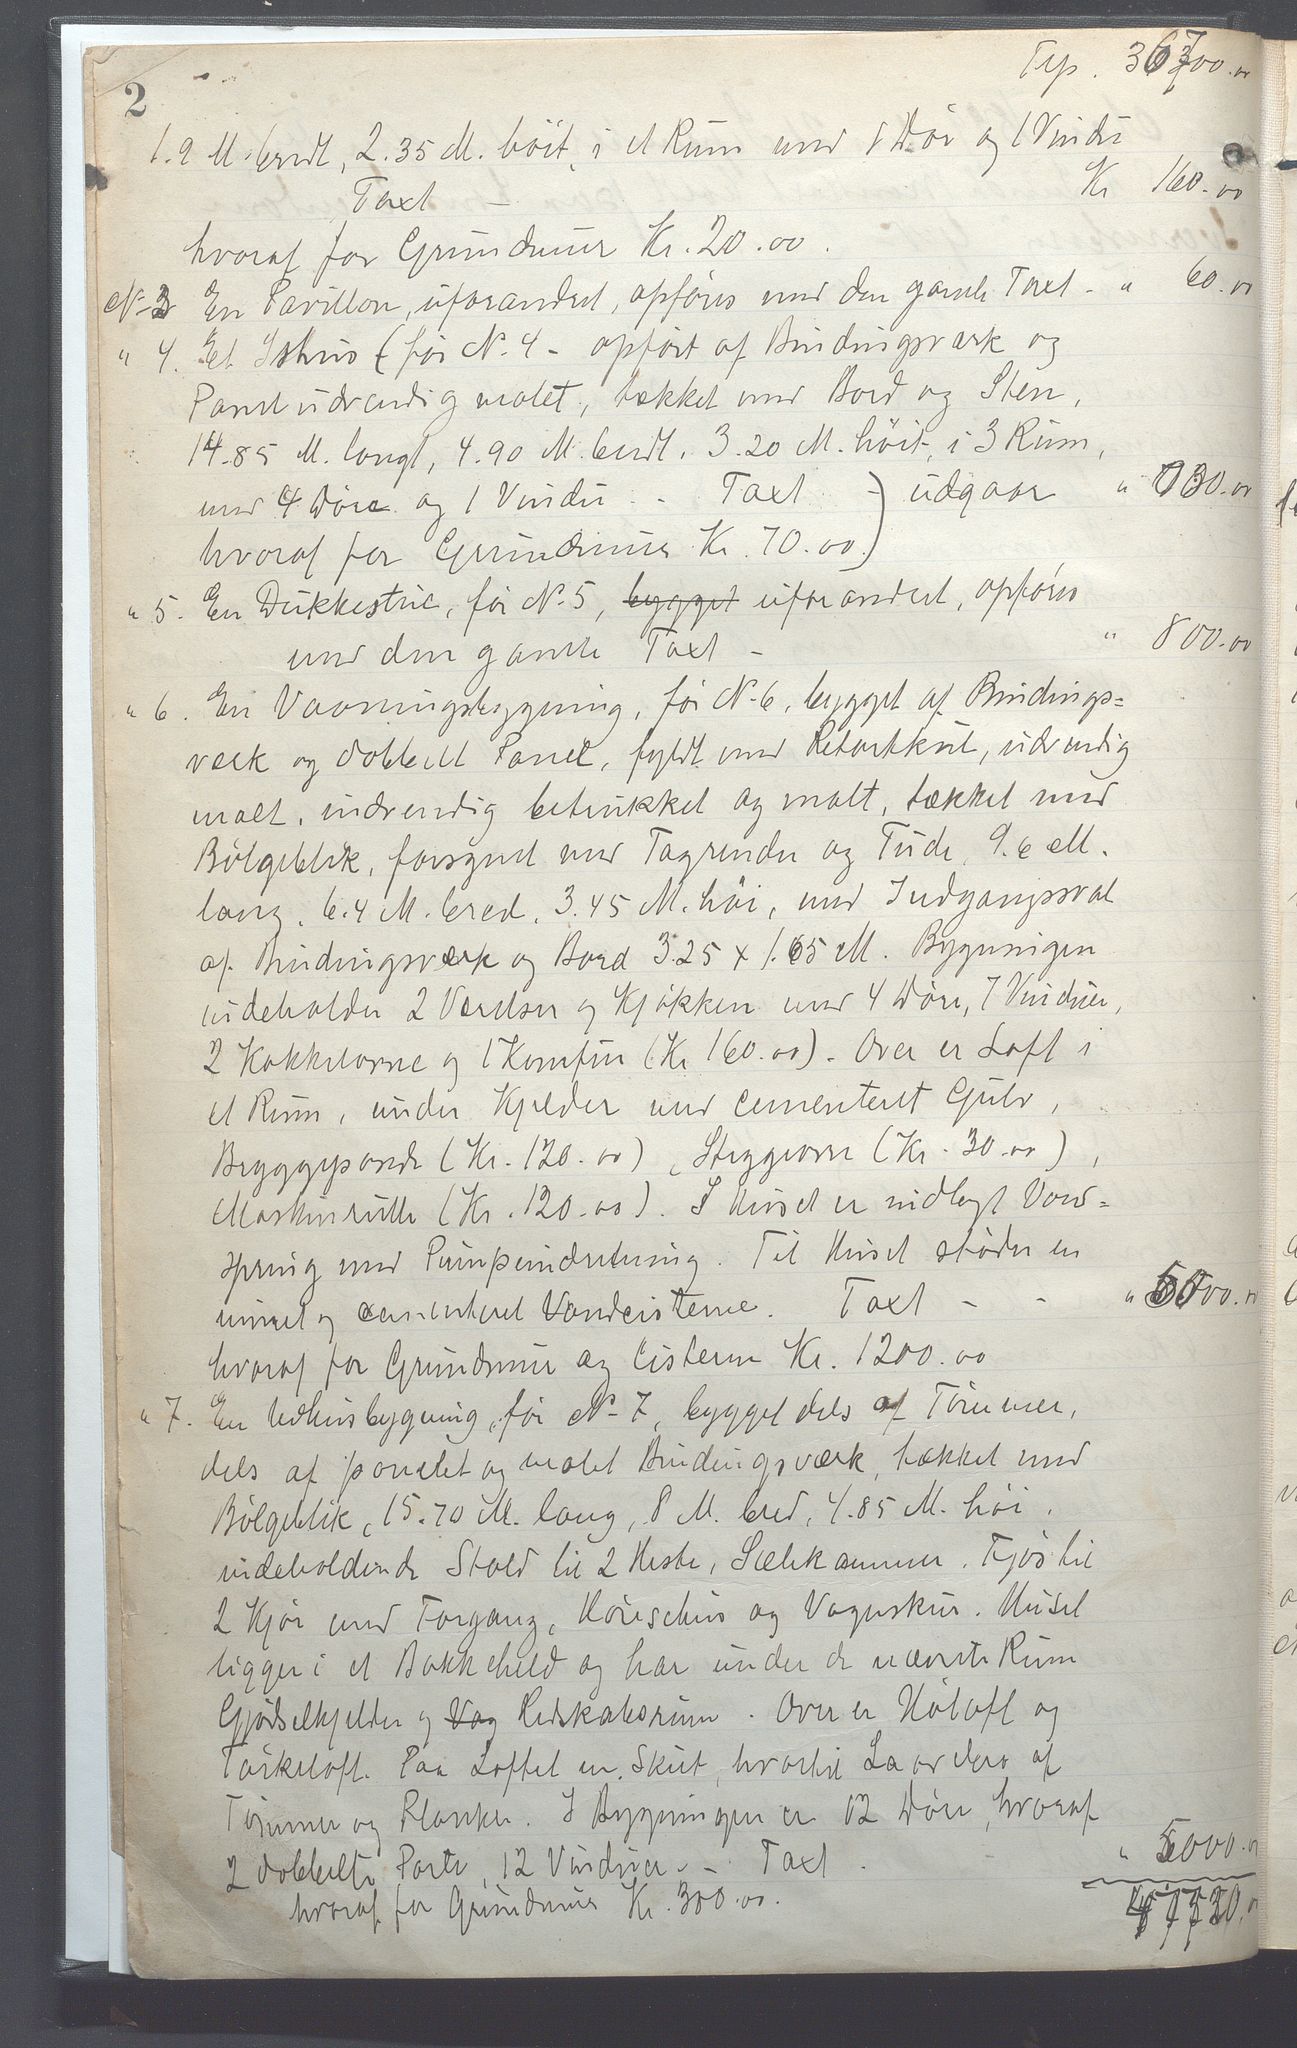 Trp. 36700.00
2
1.9 M. bredt, 2.35 M. höit, i et Rum med 1 Dör og 1 Vindu
Taxt - Kr 160.00
hvoraf for Grundmur Kr. 20.00.
No 3 En Pavillon, uforandret, opföres med den gamle Taxt - " 60.00
" 4. Et Ishus (för No. 4 - opfört af Bindingsværk og
Panel udvendig malet, tækket med Bord og Sten,
14.85 M. langt, 4.90 M. bredt, 3.20 M. höit, i 3 Rum,
med 4 Döre og 1 Vindu - Taxt -) udgaar "
hvoraf for Grundmur Kr. 70.00)
" 5. En Dukkestue, för No. 5, bygget uforandret, opföres
med den gamle Taxt - " 800.00
" 6. En Vaaningsbygning, för No. 6, bygget af Bindings=
verk og dobbelt Panel, fyldt med Retortkul, udvendig
malt, indvendig betrukket og malt, tækket med
Bölgeblik, forsynet med Tagrender og Tude, 9.6 M.
lang, 6.4 M. bred, 3.45 M. höi, med Indgangssval
af Bindingsværk og Bord 3.25 x 1.65 M. Bygningen
indeholder 2 Værelser og Kjökken med 4 Döre, 7 Vinduer,
2 Kakkelovne og 1 Komfur (Kr 160.00). Over er Loft i
et Rum, under Kjelder med cementeret Gulv,
Bryggepande (Kr. 120.00), Strygeovn (Kr. 30.00),
Maskinrulle (Kr. 120.00). I Huset er indlagt Vand=
spring med Pumpeindretning. Til Huset stöder en
muret og cementeret Vandcisterne. Taxt - - "
hvoraf for Grundmur og Cisterne Kr. 1200.00
" 7. En Udhusbygning, för No. 7, bygget dels af Tömmer,
dels af panelet og malet Bindingsværk, tækket med
Bölgeblik, 15.70 M. lang, 8 M. bred, 4.85 M. höi,
indeholdende Stald til 2 Heste, Sælekammer, Fjös til
2 Kjör med Forgang, Hönsehus og Vognskur. Huset
ligger i et Bakkeheld og har under de nævnte Rum
Gjödselkjelder og Vog Redskabsrum. Over er Höloft og
Törkeloft. Paa Loftet en Skut, hvortil Laavebro af
Tömmer og Planker. I Bygningen er 12 Döre, hvoraf
2 dobbelte Porte, 12 Vinduer - - Taxt - " 5000.00
hvoraf for Grundmur Kr. 300.00.